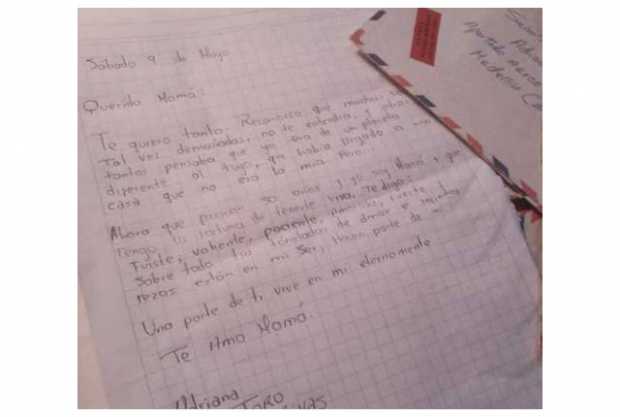 Sábado 9 de Mayo
Querida Mamá:
Te quiero tanto. Reconozco que muchas
Tal vez demasiadas, no te entendía, y otras
tantas pensaba que yo era de un planeta
diferente al tuyo, que había llegado a una
casa que no era la mía. Pero...
Ahora que pasaron 30 años y yo soy Mamá y que
Tengo la fortuna de tenerte viva, Te digo:
Fuiste, valiente, paciente, fuerte, y
Sobre todo tus toneladas de amor e
están en mi Ser, Hacen parte de
Una parte de ti vive en mi eternamente
Te Amo Mamá.
Adriana
TORO
Adri
Apartado
Medellín